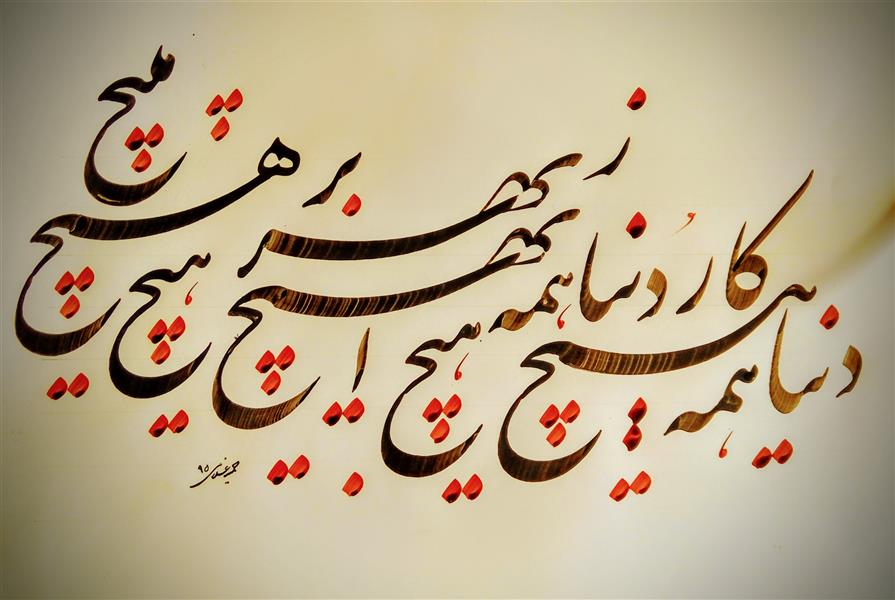 دنیا همه هیچ و کار دنیا همه هیچ
ای هیچ ز بهر هیچ بر هیچ مپیچ
۹۵